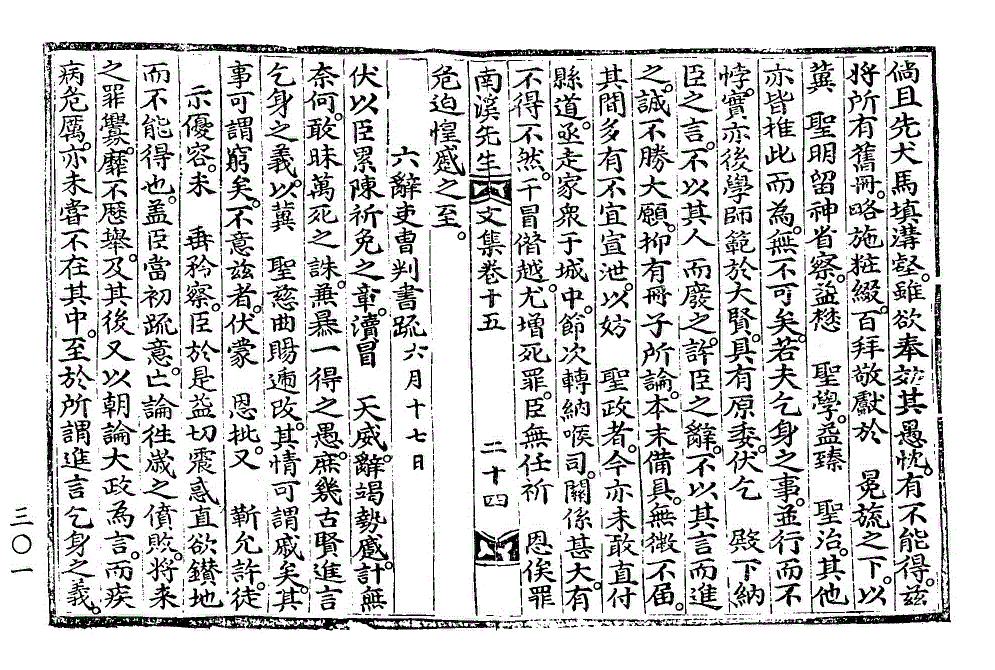 倘且先犬馬填溝壑。雖欲奉効其愚忱。有不能得。玆
將所有舊冊。略施粧綴。百拜敬獻於 冕旒之下。以
冀 聖明留神省察。益懋 聖學。益臻 聖治。其他
亦皆推此而為。無不可矣。若夫乞身之事。並行而不
悖。實亦後學師範於大賢。具有原委。伏乞 殿下納
臣之言。不以其人而廢之。許臣之辭。不以其言而進
之。誠不勝大願。抑有冊子所論。本末備具。無微不届。
其間多有不宜宣泄。以妨 聖政者。今亦未敢直付
縣道。丞走家衆于城中。節次轉納喉司。關係甚大。有
不得不然。干冒僭越。尤增死罪。臣無任祈 恩俟罪
南溪先生文集卷十五 二十四
危迫惶蹙之至。
六辭吏曹判書疏 六月十七日
伏以臣累陳祈免之章。瀆冒 天威。辭竭勢蹙。計無
奈何。敢昧萬死之誅。兼暴一得之愚。庶幾古賢進言
乞身之義。以冀 聖慈曲賜逓改。其情可謂戚矣。其
事可謂窮矣。不意玆者。伏蒙 恩批。又 靳允許。徒
示優容。未 垂矜察。臣於是益切震惑。直欲鑚地
而不能得也。盖臣當初疏意。亡論徃歲之僨敗。將来
之罪釁。靡不歷舉。及其後又以朝論大政為言。而疾
病危厲。亦未嘗不在其中。至於所謂進言乞身之義。
三〇一